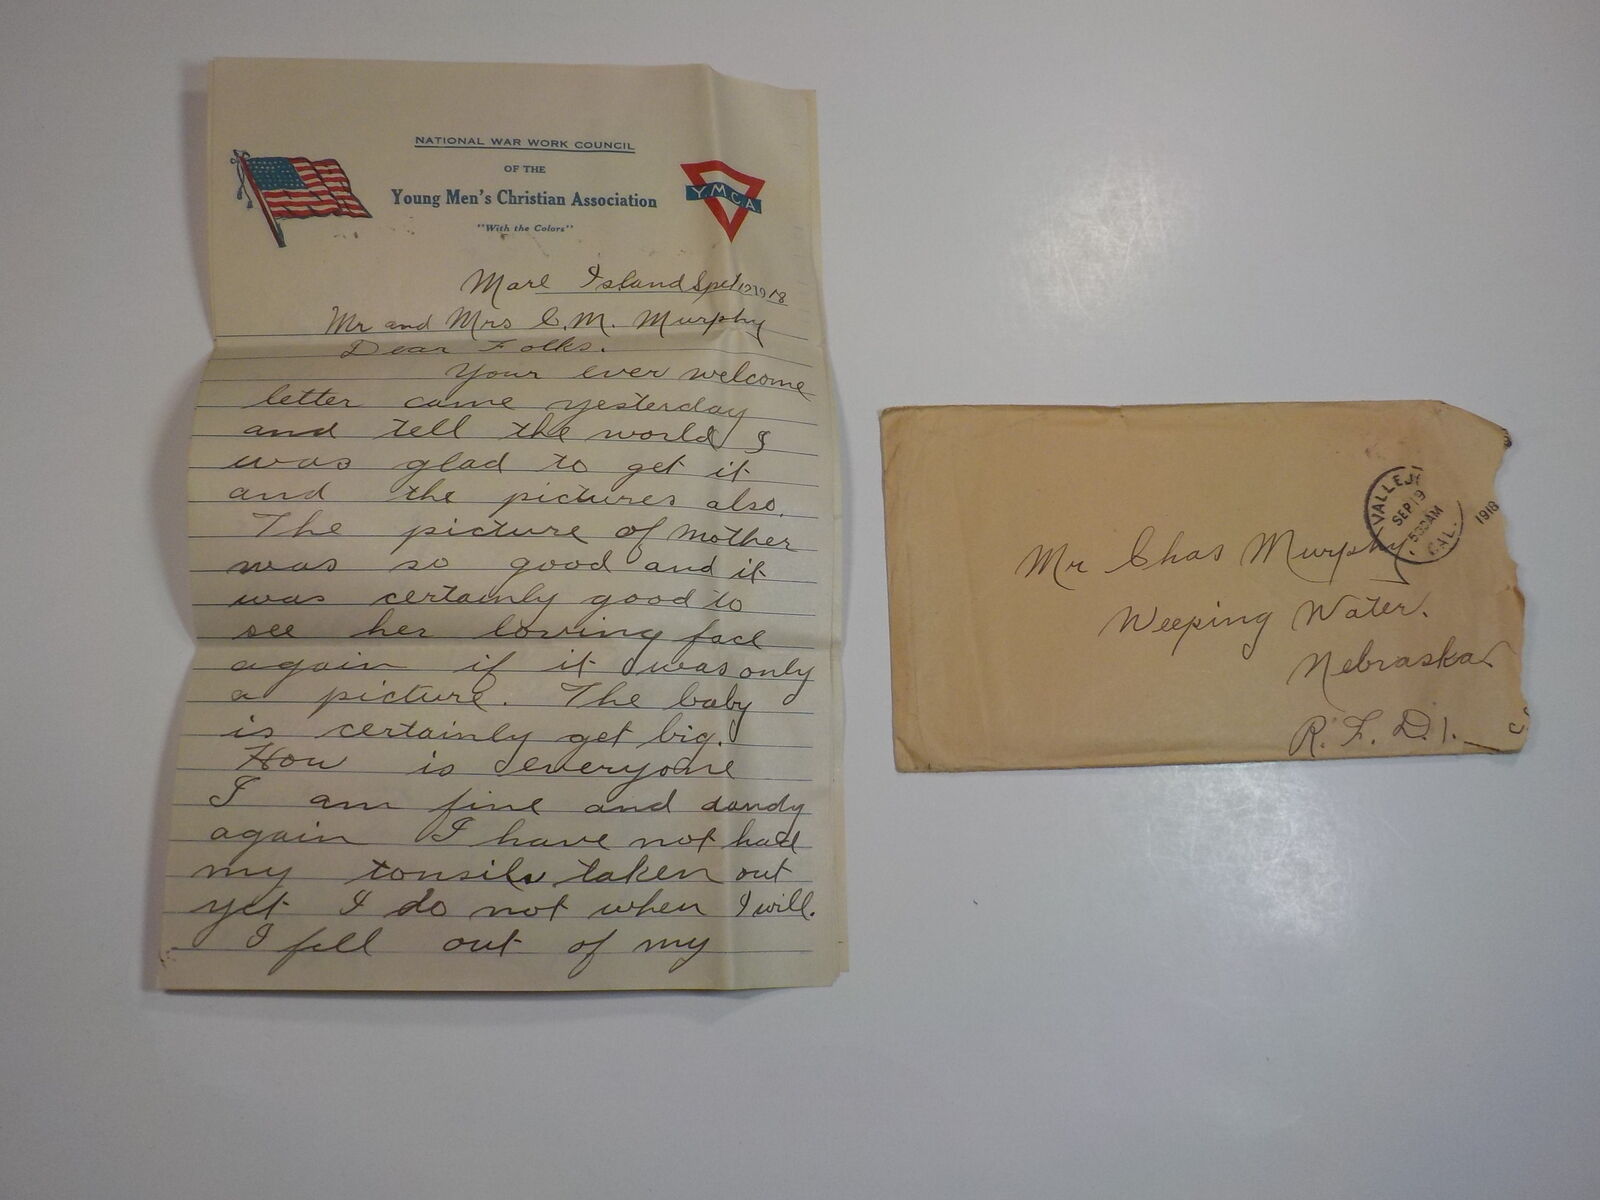 NATIONAL WAR WORK COUNCIL
OF THE
Young Men's Christian Association
"With the Colors"
Y.M.C.A
Mare Island Spet 12 1918
Mr and Mrs C.M. Murphy
Dear Folks.
Your ever welcome
letter came yesterday
and tell the world I
was glad to get it
and the pictures also.
The picture of Mother
was so good and it
was certainly good to
see her loving face
again if it was only
a picture. The baby
is certainly get big.
How is everyone
I am fine and dandy
again I have not had
my tonsils taken out
yet I do not when I will.
I fell out of my
VALLEJ
SEP 19
530AM
CAL.
1918
Mr Chas Murphy
Weeping Water.
Nebraska
R. F. D. 1.